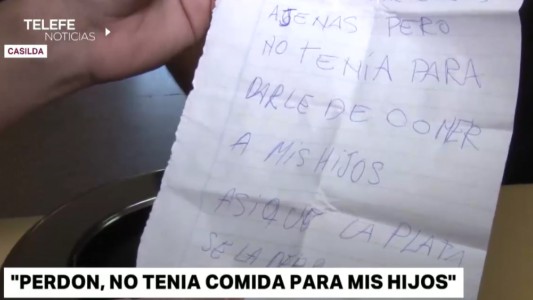 TELEFE
NOTICIAS
CASILDA
AJENAS PERO
NO TENÍA PARA
DARLE DE COMER
A MIS HIJOS
ASI QUE LA PLATA
SE LA
"PERDON, NO TENIA COMIDA PARA MIS HIJOS"